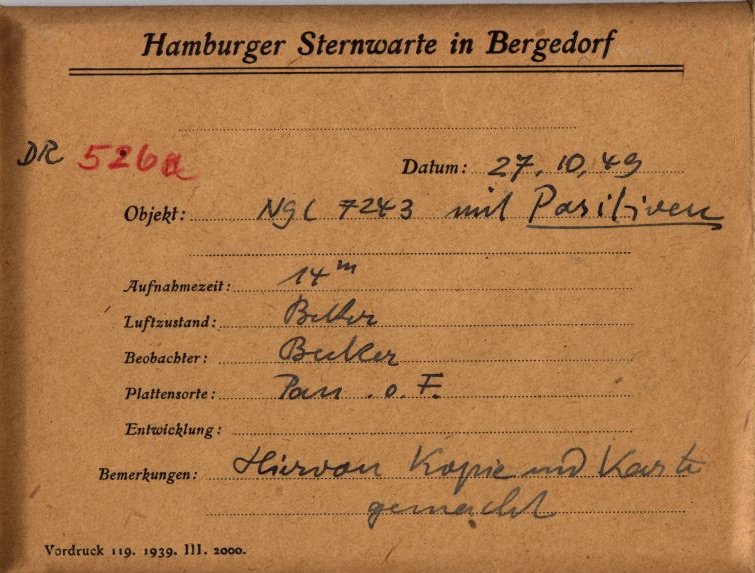 Hamburger Sternwarte in Bergedorf
DR 526a
Datum: 27.10.49
Objekt: NGC 7243 mit Positiven
Aufnahmezeit: 14m
Luftzustand: Becker
Beobachter: Becker
Plattensorte: Pan. o. F.
Entwicklung:
Bemerkungen: Hiervon Kopie und Karte
gemacht
Vordruck 119. 1939. III. 2000.